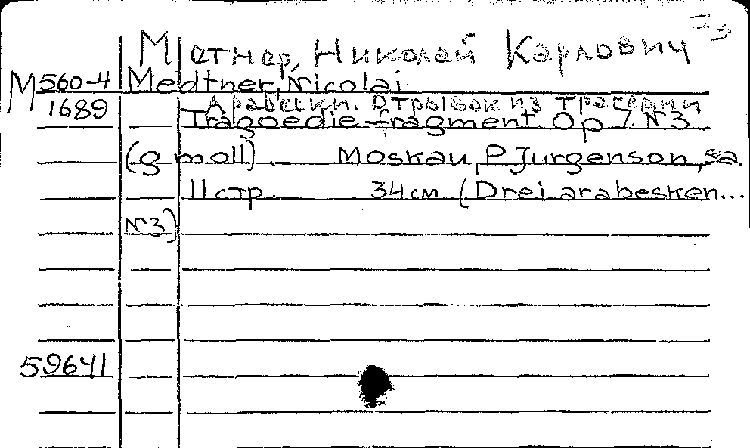 Метнер, Николай Карлович
М 560-4 Medtner, Nicolai
1689 Арабески. Отрывок из трагедии
Tragoedie-fragment. Op 7. N3
(g moll). Moskau, P. Jurgenson, s.a.
11 стр. 34 см. (Drei arabesken...
N3)
59641